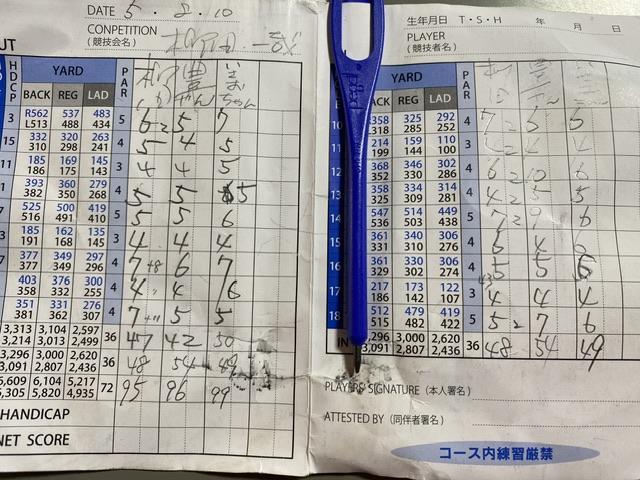 DATE 5・8・10
CONPETITION
(競技会名)
OUT
YARD
BACK REG LAD PAR
3 R562 537 483 5 6 2 5 7
L513 488 434
15 332 320 263 4 5 4 5
310 298 241
11 185 169 145 3 4 4 5
186 175 143
1 393 360 279 4 5 5 5
382 350 268
7 525 500 419 5 5 5 6
516 491 410
185 162 135 3 4 4 4
191 168 145
377 349 297 4 7 6 7
377 349 296
403 376 300 4 4 4 6
358 332 255
351 331 276 4 7 5 5
381 362 307
3,313 3,104 2,597 36 47 42 50
3,214 3,013 2,499
3,296 3,000 2,620 36 48 54 49
3,091 2,807 2,436
6,609 6,104 5,217 72 95 96 99
6,305 5,820 4,935
HANDICAP
NET SCORE
生年月日 T・S・H 年 月 日
PLAYER
(競技者名)
YARD
BACK REG LAD PAR
10 358 325 292 4 7 6 6
318 285 252
214 159 110 3
199 144 100
368 346 302 4 6 2 10 6
352 330 286
358 334 314 4 4 2 5 5
325 309 281
547 514 449 5 7 2 9 6
536 503 438
361 340 306 4 6 4 6
331 310 276
361 330 306 4 5 5 5
329 302 274
217 173 122 3 4 4 4
186 142 107
18 512 479 419 5 5 2 7 6
515 482 422
IN 3,296 3,000 2,620 36 48 54 49
3,091 2,807 2,436
PLAYER'S SIGNATURE (本人署名)
ATTESTED BY (同伴者署名)
コース内練習厳禁